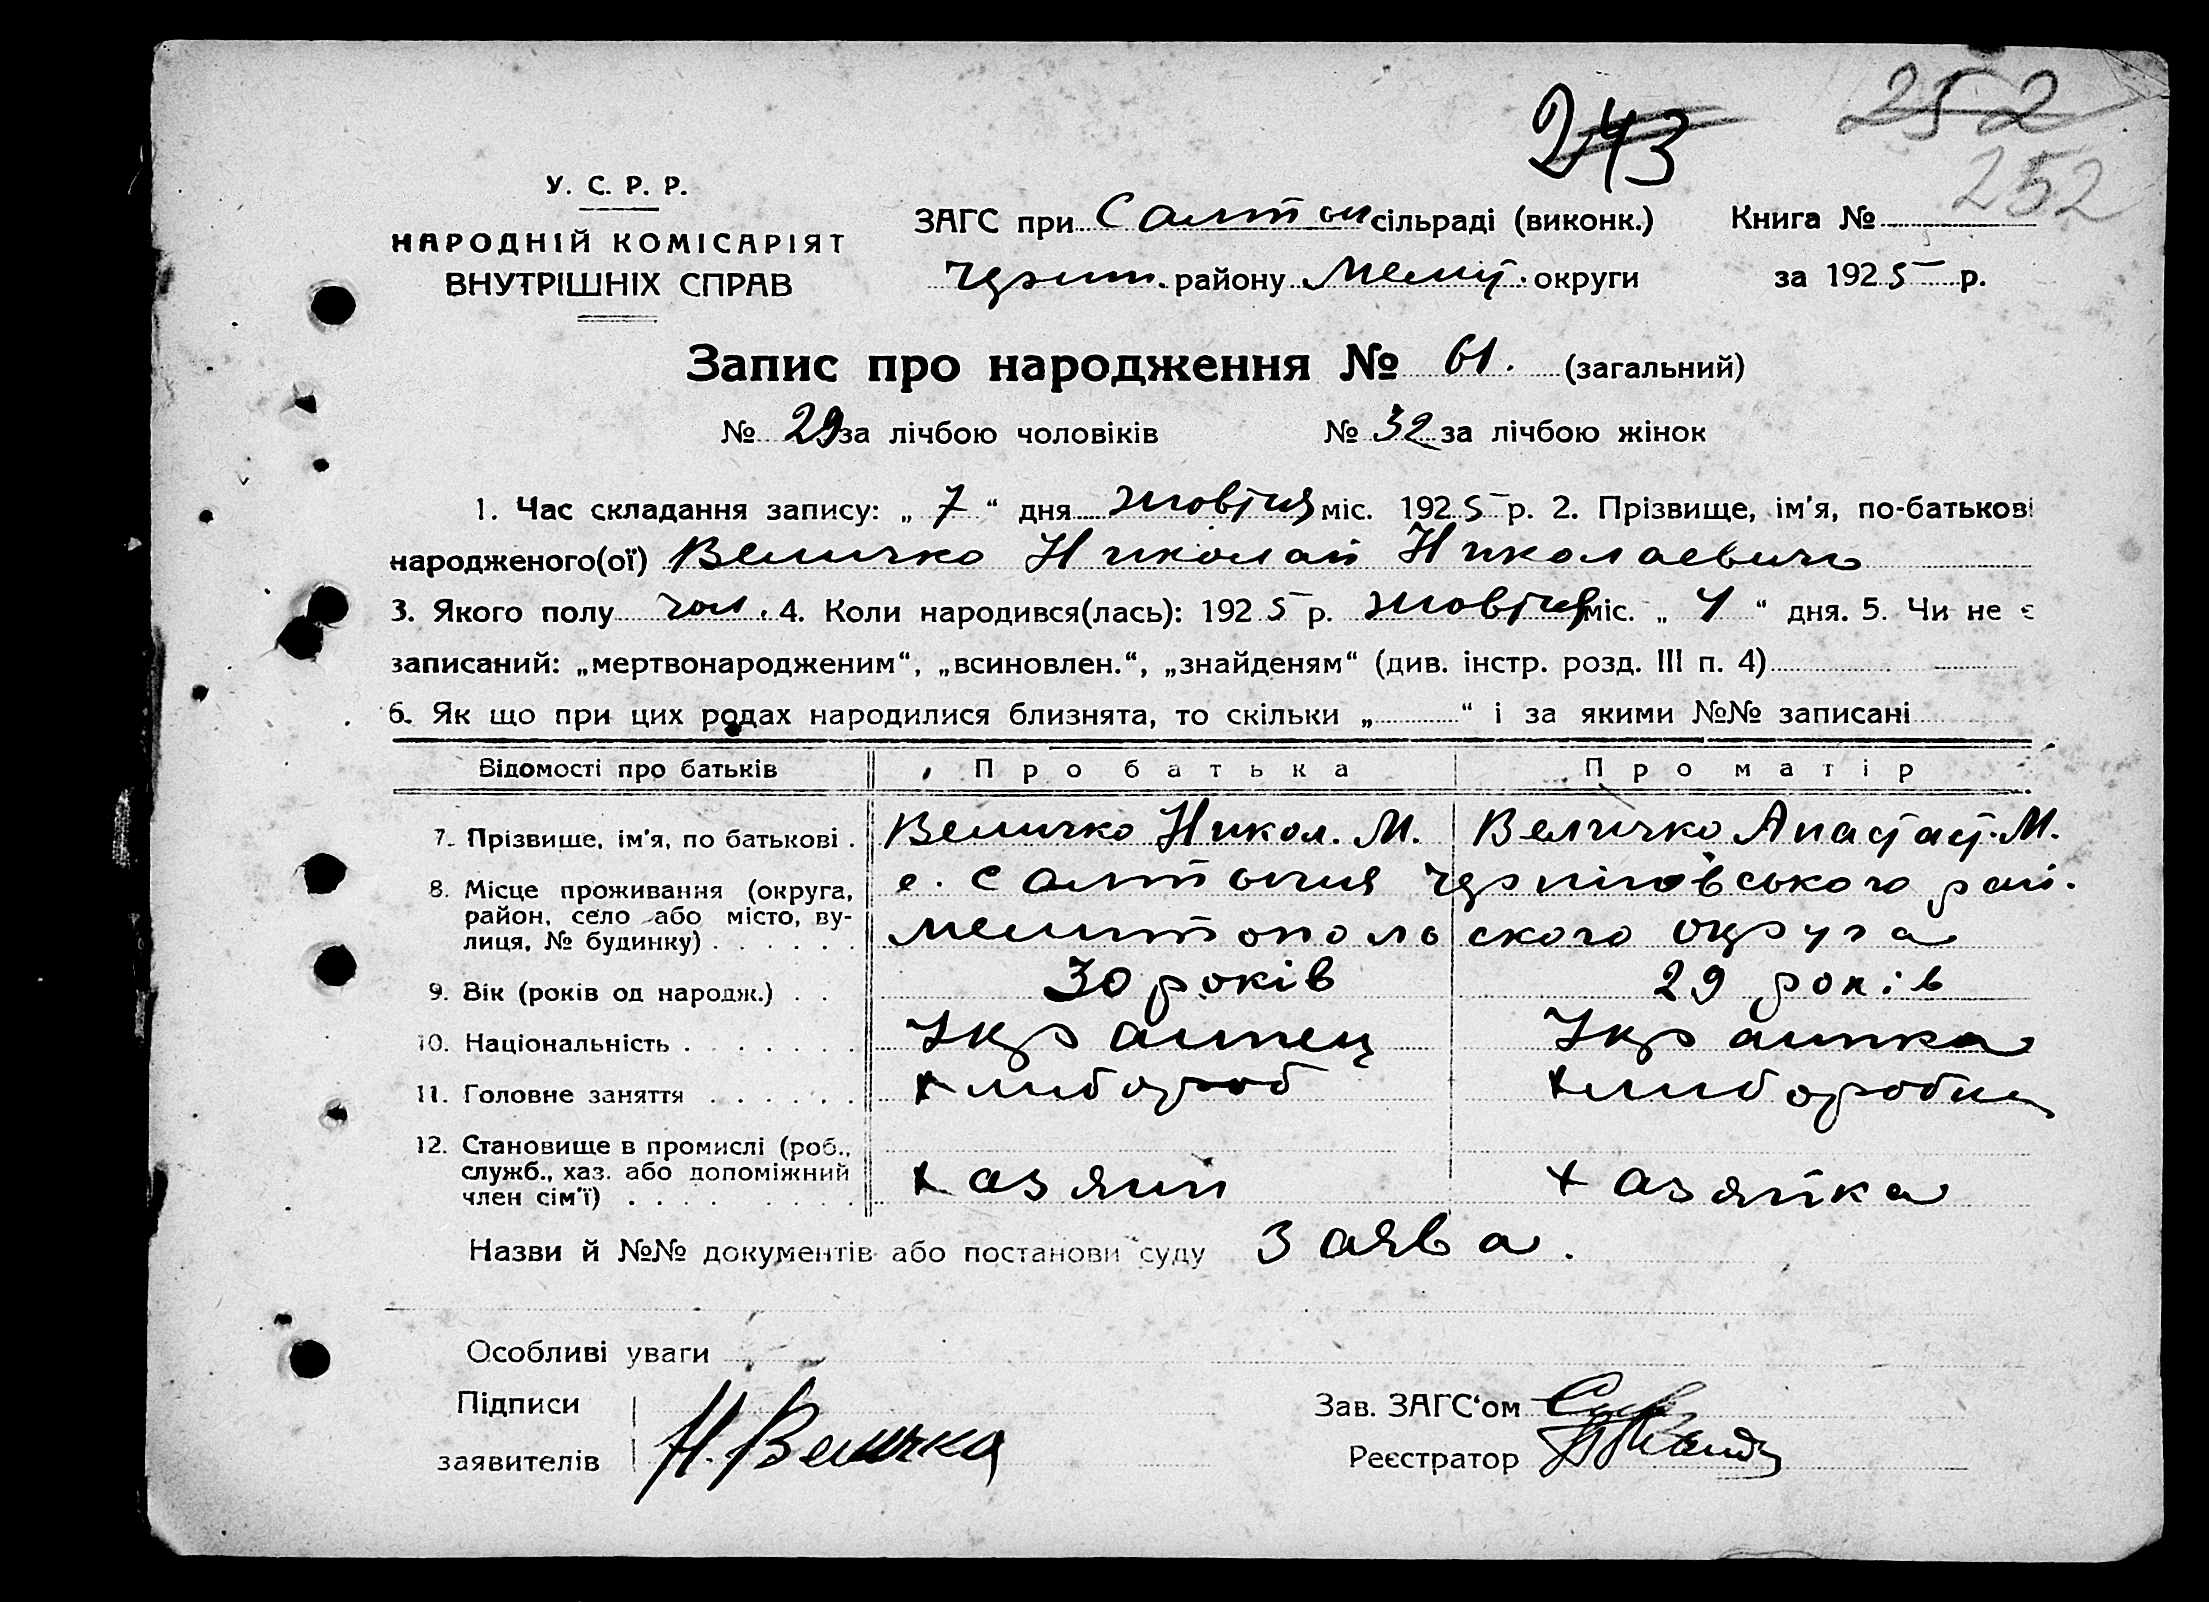 252
243
252
У. С. Р. Р.
НАРОДНІЙ КОМІСАРІЯТ
ВНУТРІШНІХ СПРАВ
ЗАГС при Салтич сільраді (виконк.) Книга №
району округи за 1925 р.
Запис про народження № 61. (загальний)
№ 29 за лічбою чоловіків № 32 за лічбою жінок
1. Час складання запису: „ 7 “ дня жовтня міс. 1925 р. 2. Прізвище, ім'я, по-батькові
народженого(ої) Величко Николай Николаевичь
3. Якого полу чол. 4. Коли народився(лась): 1925 р. жовтня міс. „ “ дня. 5. Чи не є
записаний: „мертвонародженим“, „всиновлен.“, „знайденям“ (див. інстр. розд. III п. 4)
6. Як що при цих родах народилися близнята, то скільки „ “ і за якими №№ записані
Відомості про батьків Про батька Про матір
7. Прізвише, ім'я, по батькові . Величко Никол. М. Величко Анастаст. М.
8. Місце проживання (округа, с. Салтичия Чернігівського рай.
район, село або місто, ву-
лиця, № будинку) . . . . . . Мелитопольского округа
9. Вік (років од народж.) . . 30 років 29 років
10. Національність . . . . . . . Украинец Украинка
11. Головне заняття . . . . . . хлибороб хлиборобка
12. Становище в промислі (роб.,
служб., хаз. або допоміжний хазяин хазяйка
член сім'ї) . . . . . . . .
Назви й №№ документів або постанови суду Заява.
Особливі уваги
Підписи Зав. ЗАГС‘ом
заявителів Н. Величко Реєстратор